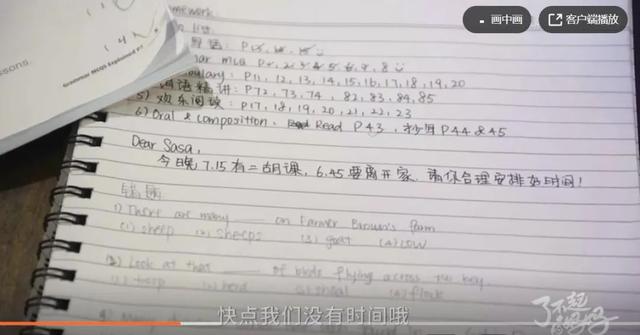 画中画
客户端播放
Grammar MCQs Explained P1
sons.
mework
P11, 12, 13, 14, 15, 16, 17, 18, 19, 20
词语精讲：P72, 73, 74, 82, 83, 84, 85
5) 欢乐阅读：P17, 18, 19, 20, 21, 22, 23
6) Oral & composition. Read P43, 抄写 P44 & 45
Dear Sasa,
今晚7.15有二胡课，6.45要离开家，请你合理安排好时间！
错题
1) There are many ___ on Farmer Brown's farm
(1) sheep (2) sheeps (3) goat (4) cow
(2) Look at that ___ of birds flying across the
(2) herd (4) flock
快点我们没有时间哦
了不起的妈妈